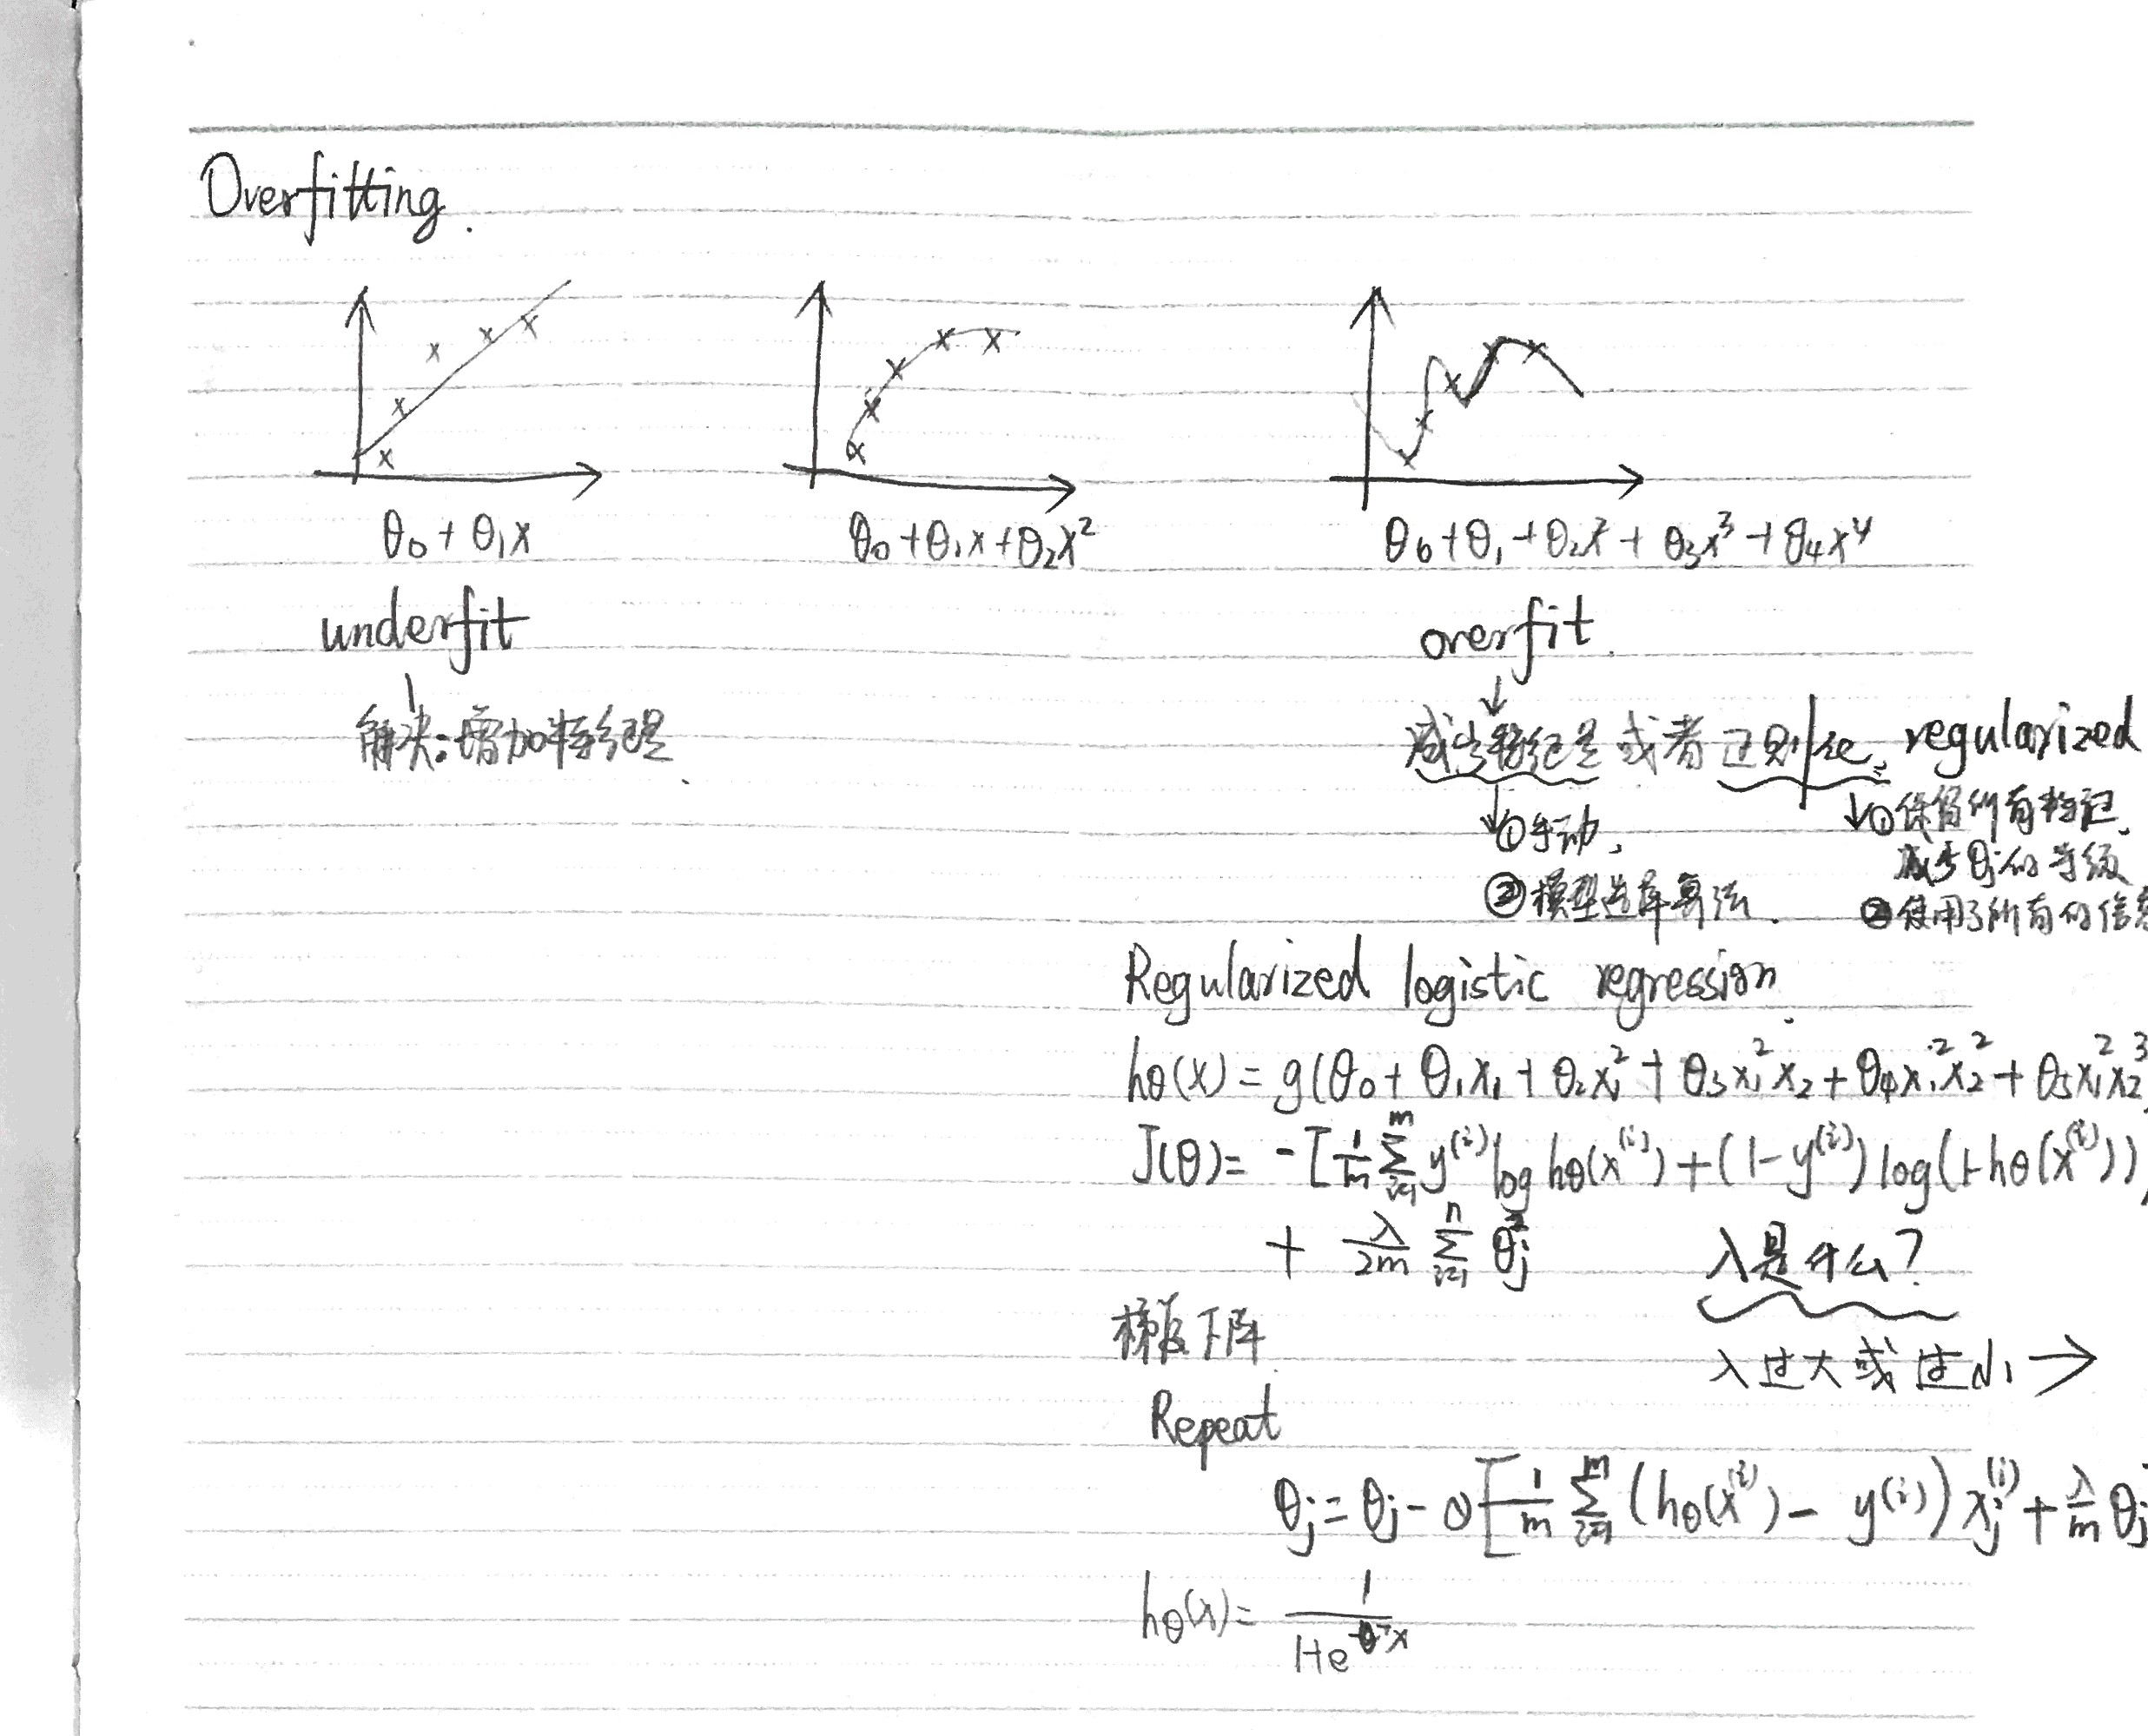 Overfitting.
θ₀ + θ₁x
θ₀ + θ₁x + θ₂x²
θ₀ + θ₁ + θ₂x² + θ₃x³ + θ₄x⁴
underfit
overfit.
解决: 增加特征量
减少特征量 或者 正则化。 regularized
①手动、
②模型选择算法.
①保留所有特征、
减少θj的等级
②使用了所有的信息
Regularized logistic regression.
hθ(x) = g(θ₀ + θ₁x₁ + θ₂x₁² + θ₃x₁²x₂ + θ₄x₁²x₂² + θ₅x₁²x₂³
J(θ) = -[1/m Σᵢ₌₁ᵐ y⁽ⁱ⁾ log hθ(x⁽ⁱ⁾) + (1-y⁽ⁱ⁾) log(1-hθ(x⁽ⁱ⁾))
+ λ/2m Σᵢ₌₁ⁿ θj²
λ是什么?
梯度下降
λ过大或过小 →
Repeat
θj = θj - α[1/m Σᵢ₌₁ᵐ (hθ(x⁽ⁱ⁾) - y⁽ⁱ⁾) xj⁽ⁱ⁾ + λ/m θj
hθ(x) = 1/(1+e^(-θᵀx))